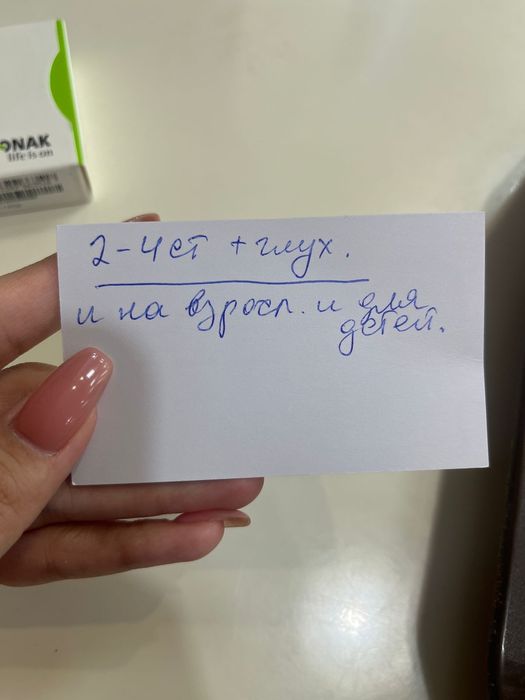 ONAK
life is on
2-4 ст + глух.
и на взросл. и для
детей.